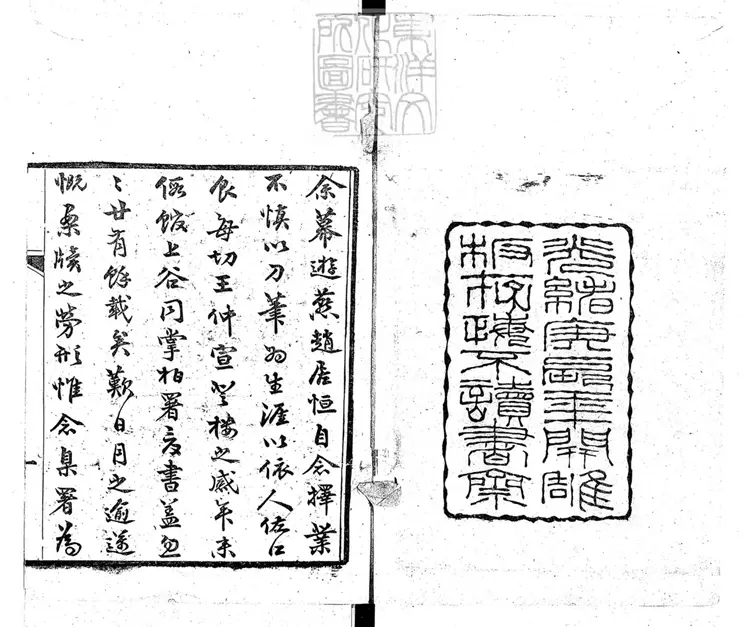 東洋文
化研究
所圖書
光緒庚寅年開雕
板不讀書
余幕遊燕趙居恒自念擇業
不慎以刀筆為生涯以依人佐口
食每切王仲宣登樓之感年來
假館上谷同掌柏署書蓋忽
〻廿有餘載矣歎日月之逾邁
慨案牘之勞形惟念臬署為